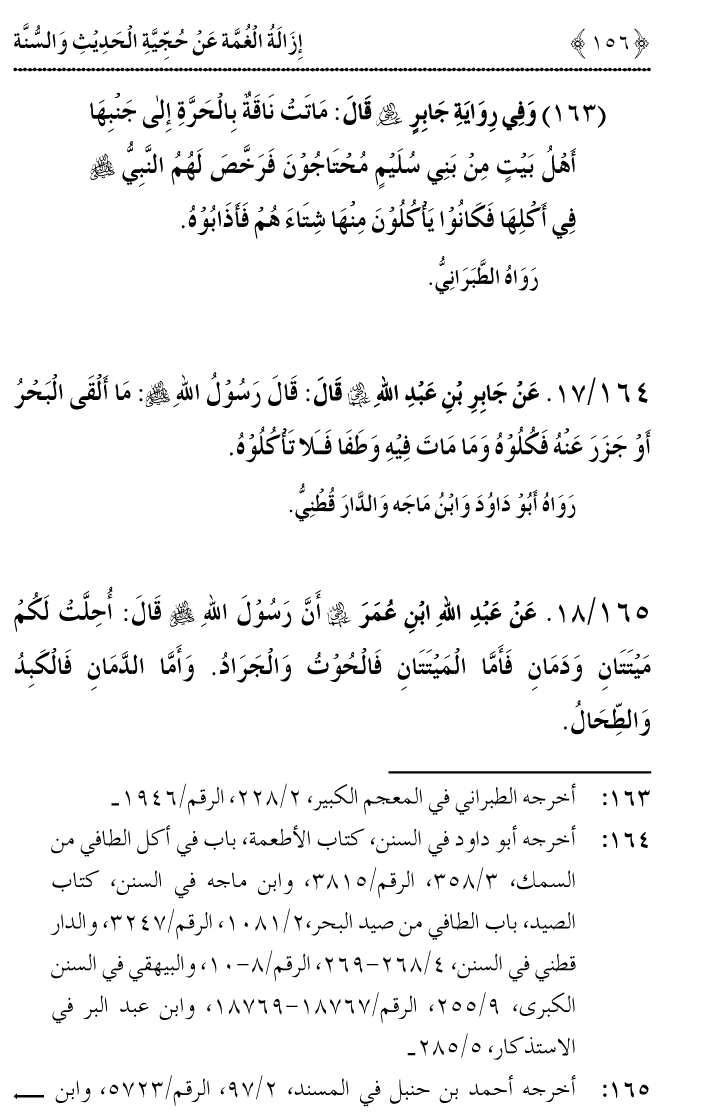 ﴿١٥٦﴾ إِزَالَةُ الْغُمَّة عَنْ حُجِّيَّةِ الْحَدِيْثِ وَالسُّنَّة
(١٦٣) وَفِي رِوَايَةِ جَابِرٍ ﵁ قَالَ: مَاتَتْ نَاقَةٌ بِالْحَرَّةِ إِلٰى جَنْبِهَا
أَهْلُ بَيْتٍ مِنْ بَنِي سُلَيْمٍ مُحْتَاجُوْنَ فَرَخَّصَ لَهُمُ النَّبِيُّ ﷺ
فِي أَكْلِهَا فَكَانُوْا يَأْكُلُوْنَ مِنْهَا شِتَاءَ هُمْ فَأَذَابُوْهُ.
رَوَاهُ الطَّبَرَانِيُّ.
١٧/١٦٤. عَنْ جَابِرِ بْنِ عَبْدِ اللهِ ﵄ قَالَ: قَالَ رَسُوْلُ اللهِ ﷺ: مَا أَلْقَى الْبَحْرُ
أَوْ جَزَرَ عَنْهُ فَكُلُوْهُ وَمَا مَاتَ فِيْهِ وَطَفَا فَلَا تَأْكُلُوْهُ.
رَوَاهُ أَبُوْ دَاوُدَ وَابْنُ مَاجَه وَالدَّارَ قُطْنِيُّ.
١٨/١٦٥. عَنْ عَبْدِ اللهِ ابْنِ عُمَرَ ﵄ أَنَّ رَسُوْلَ اللهِ ﷺ قَالَ: أُحِلَّتْ لَكُمْ
مَيْتَتَانِ وَدَمَانِ فَأَمَّا الْمَيْتَتَانِ فَالْحُوْتُ وَالْجَرَادُ. وَأَمَّا الدَّمَانِ فَالْكَبِدُ
وَالطِّحَالُ.
١٦٣: أخرجه الطبراني في المعجم الكبير، ٢٢٨/٢، الرقم/١٩٤٦ـ
١٦٤: أخرجه أبو داود في السنن، كتاب الأطعمة، باب في أكل الطافي من
السمك، ٣٥٨/٣، الرقم/٣٨١٥، وابن ماجه في السنن، كتاب
الصيد، باب الطافي من صيد البحر،١٠٨١/٢، الرقم/٣٢٤٧، والدار
قطني في السنن، ٢٦٨/٤-٢٦٩، الرقم/٨-١٠، والبيهقي في السنن
الكبرى، ٢٥٥/٩، الرقم/١٨٧٦٧-١٨٧٦٩، وابن عبد البر في
الاستذكار، ٢٨٥/٥ـ
١٦٥: أخرجه أحمد بن حنبل في المسند، ٩٧/٢، الرقم/٥٧٢٣، وابن ←